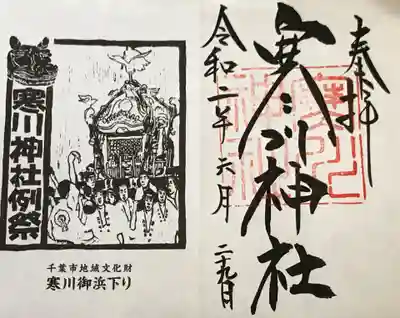 奉拝
寒川神社
令和二年六月二十九日
寒川神社例祭
千葉市地域文化財
寒川御浜下り